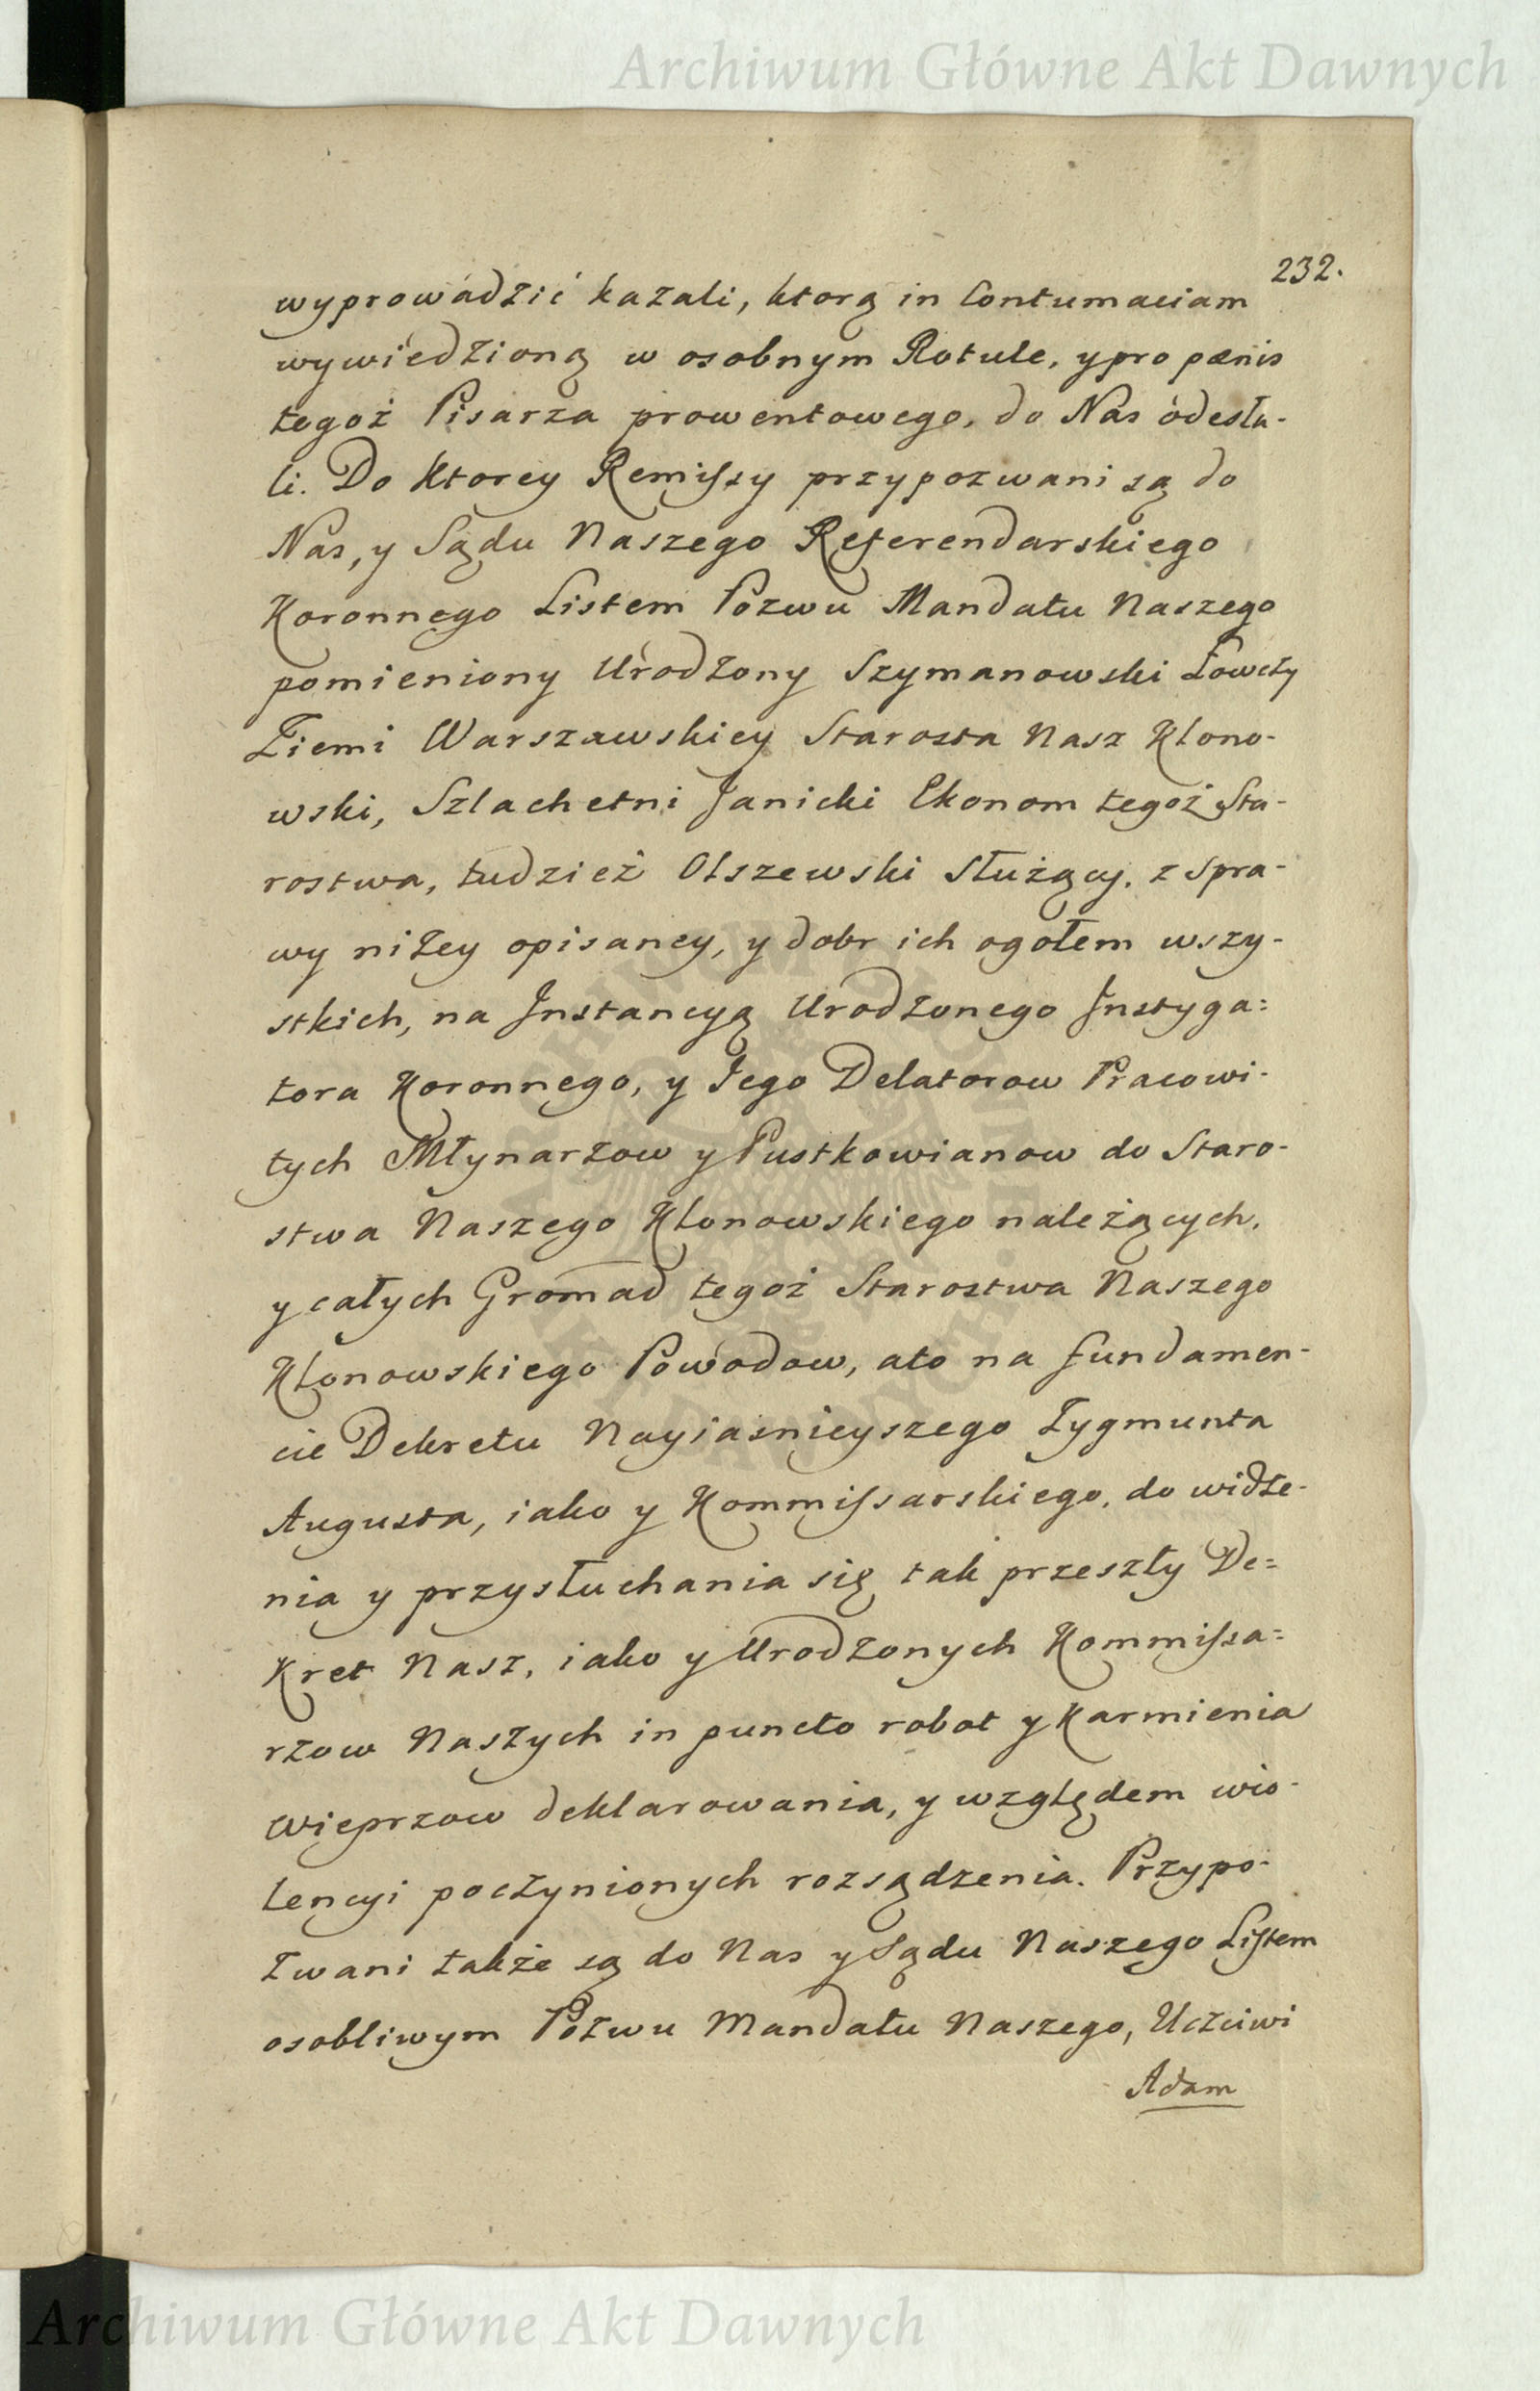 Archiwum Główne Akt Dawnych
232.
wyprowadzić kazali, ktorą in Contumaciam
wywiedzioną w osobnym Rotule, y pro pænis
tegoż Pisarza prowentowego, do Nas odesła-
li. Do Ktorey Remissy przypozwani są do
Nas, y Sądu Naszego Referendarskiego
Koronnego Listem Pozwu Mandatu Naszego
pomieniony Urodzony Szymanowski Łowczy
Ziemi Warszawskiey Starosta Nasz Klono-
wski, Szlachetni Janicki Ekonom tegoż Sta-
rostwa, tudzież Olszewski Służący, z spra-
wy niżey opisaney, y dobr ich ogołem wszy-
stkich, na Instancyą Urodzonego Instyga=
tora Koronnego, y Jego Delatorow Pracowi-
tych Młynarzow y Pustkowianow do Staro-
stwa Naszego Klonowskiego należących,
y całych Gromad tegoż Starostwa Naszego
Klonowskiego Powodow, ato na fundamen-
cie Dekretu Nayiasnieyszego Zygmunta
Augusta, iako y Kommissarskiego, do widze-
nia y przysłuchania się tak przeszły De=
kret Nasz, iako y Urodzonych Kommissa=
rzow Naszych in puncto robot y Karmienia
wieprzow deklarowania, y względem wio-
lencyi poczynionych rozsądzenia. Przypo-
zwani także są do Nas y Sądu Naszego Listem
osobliwym Pozwu Mandatu Naszego, Uczciwi
Adam
Archiwum Główne Akt Dawnych